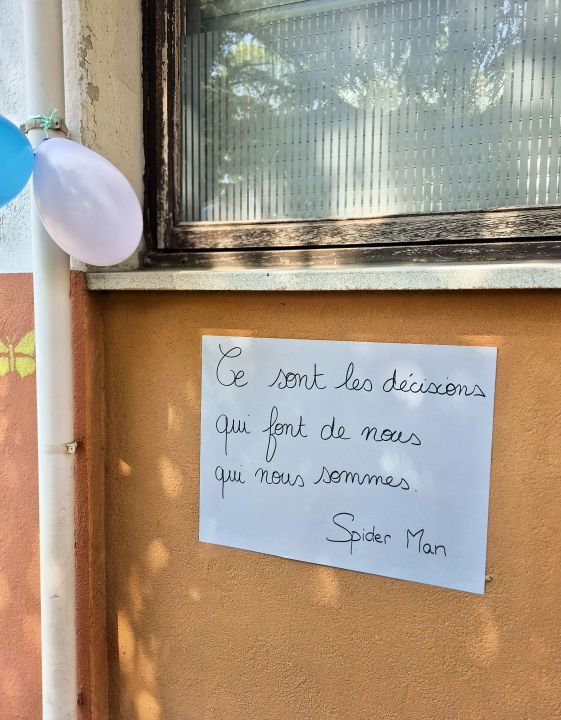 Ce sont les décisions
qui font de nous
qui nous sommes.
Spider Man